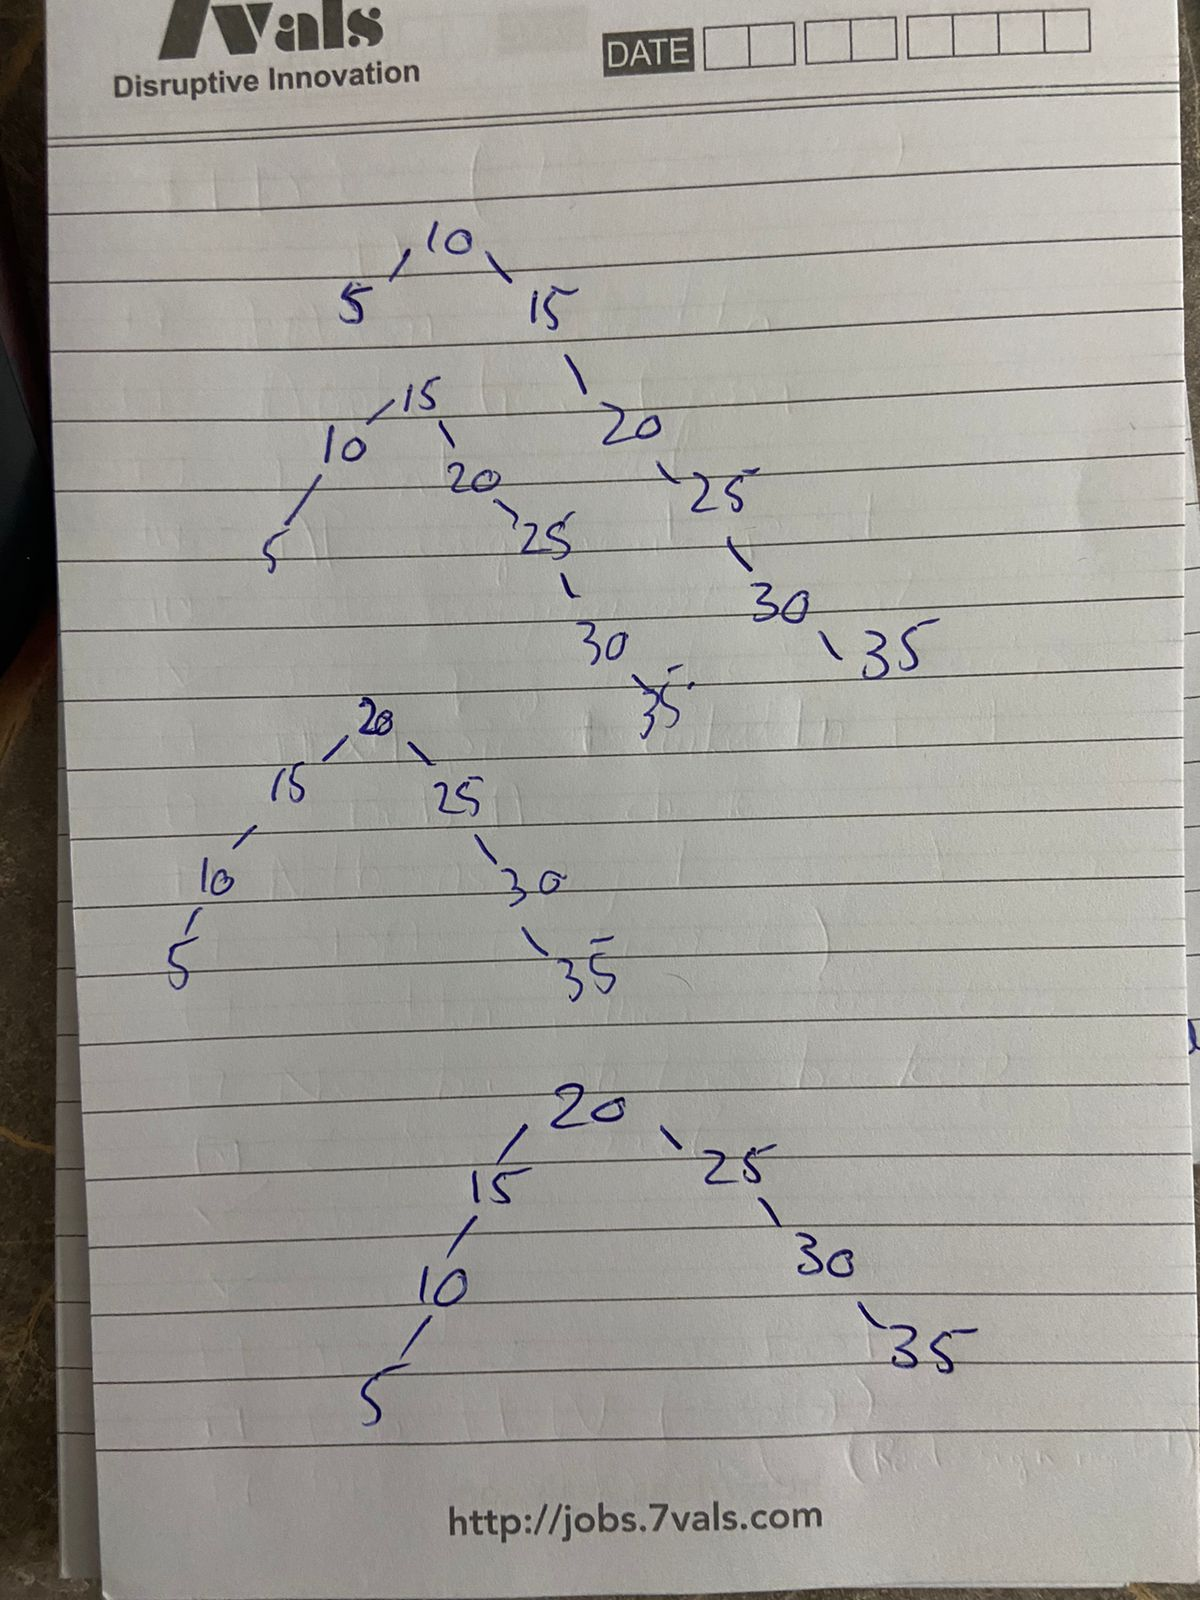 7vals
Disruptive Innovation
DATE
10
5 15
20
25
30
35
15
10
20
5
25
30
35
20
15 25
10 30
5 35
20
15 25
10 30
5 35
http://jobs.7vals.com